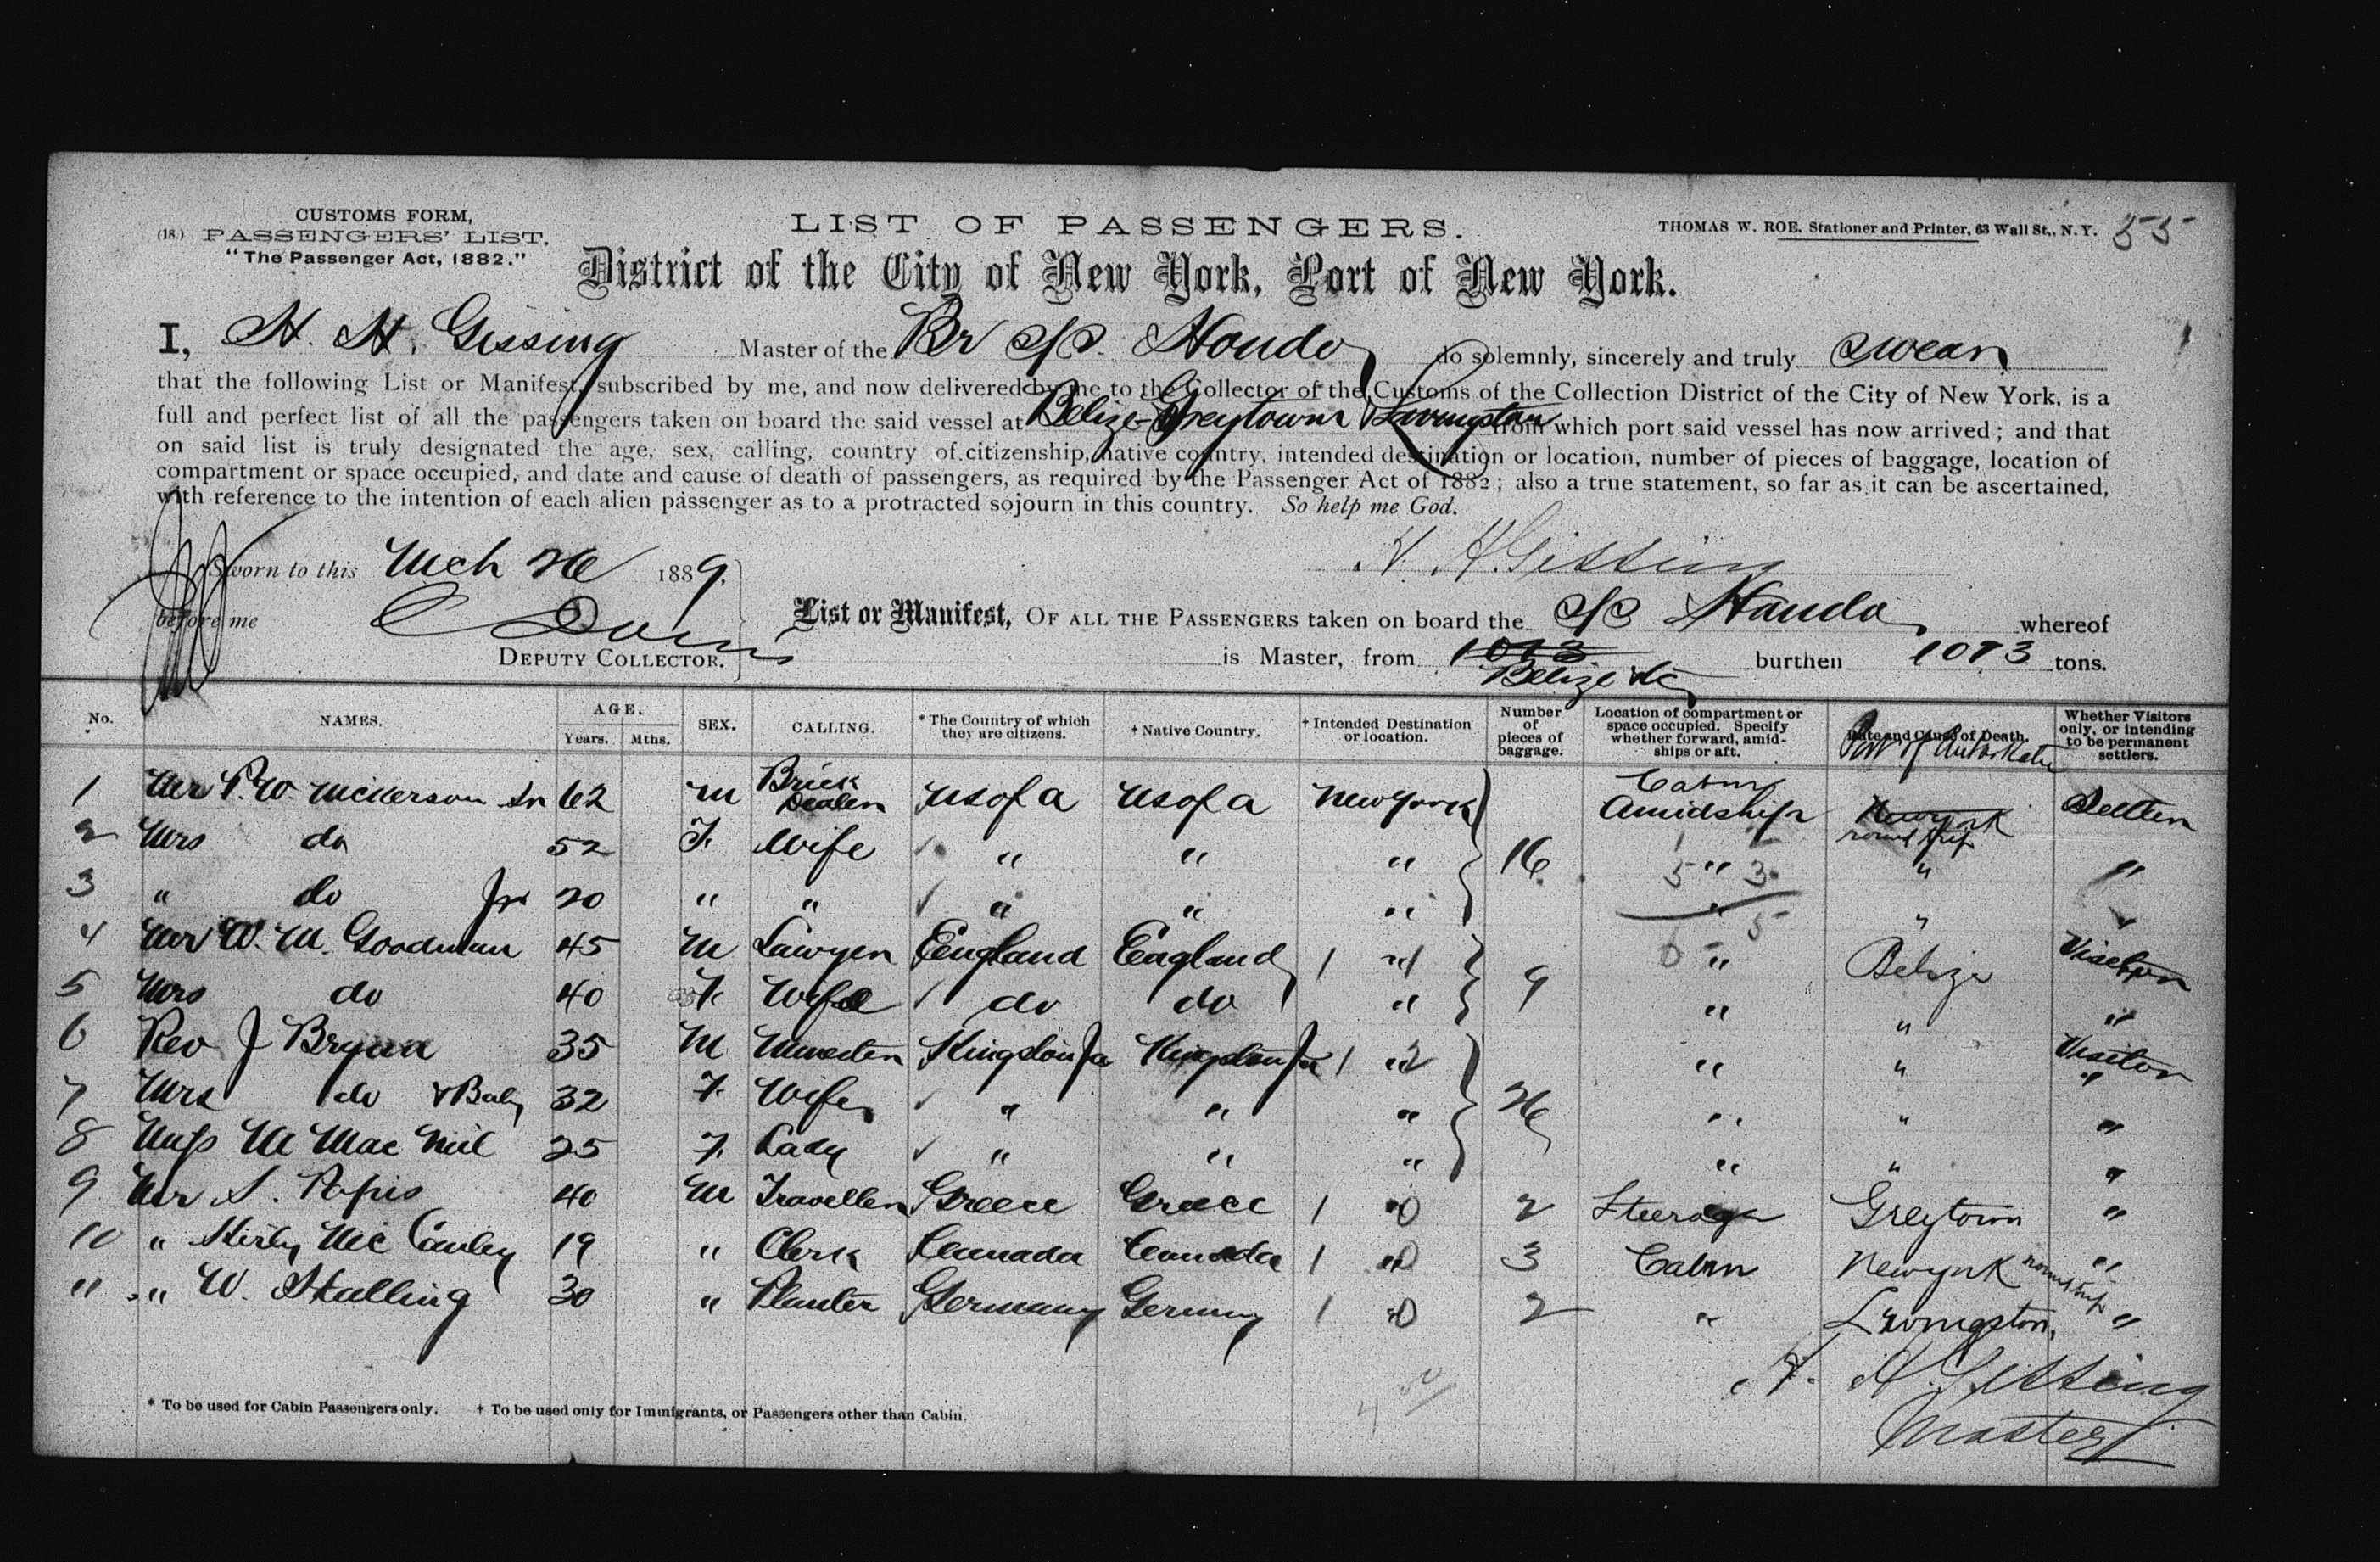 CUSTOMS FORM,
(18.) PASSENGERS' LIST.
"The Passenger Act, 1882."
LIST OF PASSENGERS.
THOMAS W. ROE, Stationer and Printer, 63 Wall St., N. Y. 55
District of the City of New York, Port of New York.
I, H. H. Gissing Master of the Br SS. Hondo do solemnly, sincerely and truly swear
that the following List or Manifest, subscribed by me, and now delivered by me to the Collector of the Customs of the Collection District of the City of New York, is a
full and perfect list of all the passengers taken on board the said vessel at Belize Greytown & Livingston from which port said vessel has now arrived; and that
on said list is truly designated the age, sex, calling, country of citizenship, native country, intended destination or location, number of pieces of baggage, location of
compartment or space occupied, and date and cause of death of passengers, as required by the Passenger Act of 1882; also a true statement, so far as it can be ascertained,
with reference to the intention of each alien passenger as to a protracted sojourn in this country. So help me God.
H. H Gissing
Sworn to this Mch 26 1889,
before me
DEPUTY COLLECTOR.
List or Manifest, OF ALL THE PASSENGERS taken on board the SS Hondo whereof
is Master, from 1073 Belize &c burthen 1073 tons.
No. NAMES. AGE. Years. Mths. SEX. CALLING. * The Country of which they are citizens. † Native Country. † Intended Destination or location. Number of pieces of baggage. Location of compartment or space occupied. Specify whether forward, amidships or aft. Date and Cause of Death. Port of Embarkation Whether Visitors only, or intending to be permanent settlers.
1 Mr P. W. Nickerson Sr 62 M Brick Dealer US of A US of A New York Cabin Amidships New York round trip Settler
2 Mrs do 52 F. Wife " " " 16 " " "
3 " do Jr 20 " " " " " " " "
4 Mr W. M. Goodman 45 M Lawyer England England 1 " " Belize Visitor
5 Mrs do 40 F. Wife do do " 9 " " "
6 Rev J Bryan 35 M Minister Kingston Ja Kingston Ja 1 " " " Visitor
7 Mrs do & Baby 32 F. Wife " " " 26 " " "
8 Miss M Mac Neil 25 F. Lady " " " " " "
9 Mr S. Papis 40 M Traveller Greece Greece 1 " 2 Steerage Greytown "
10 " Kirby Mc Cauley 19 " Clerk Canada Canada 1 " 3 Cabin New York round trip "
" " W. Stalling 30 " Planter Germany Germany 1 " 2 " Livingston "
H. H. Gissing
Master
* To be used for Cabin Passengers only. † To be used only for Immigrants, or Passengers other than Cabin.